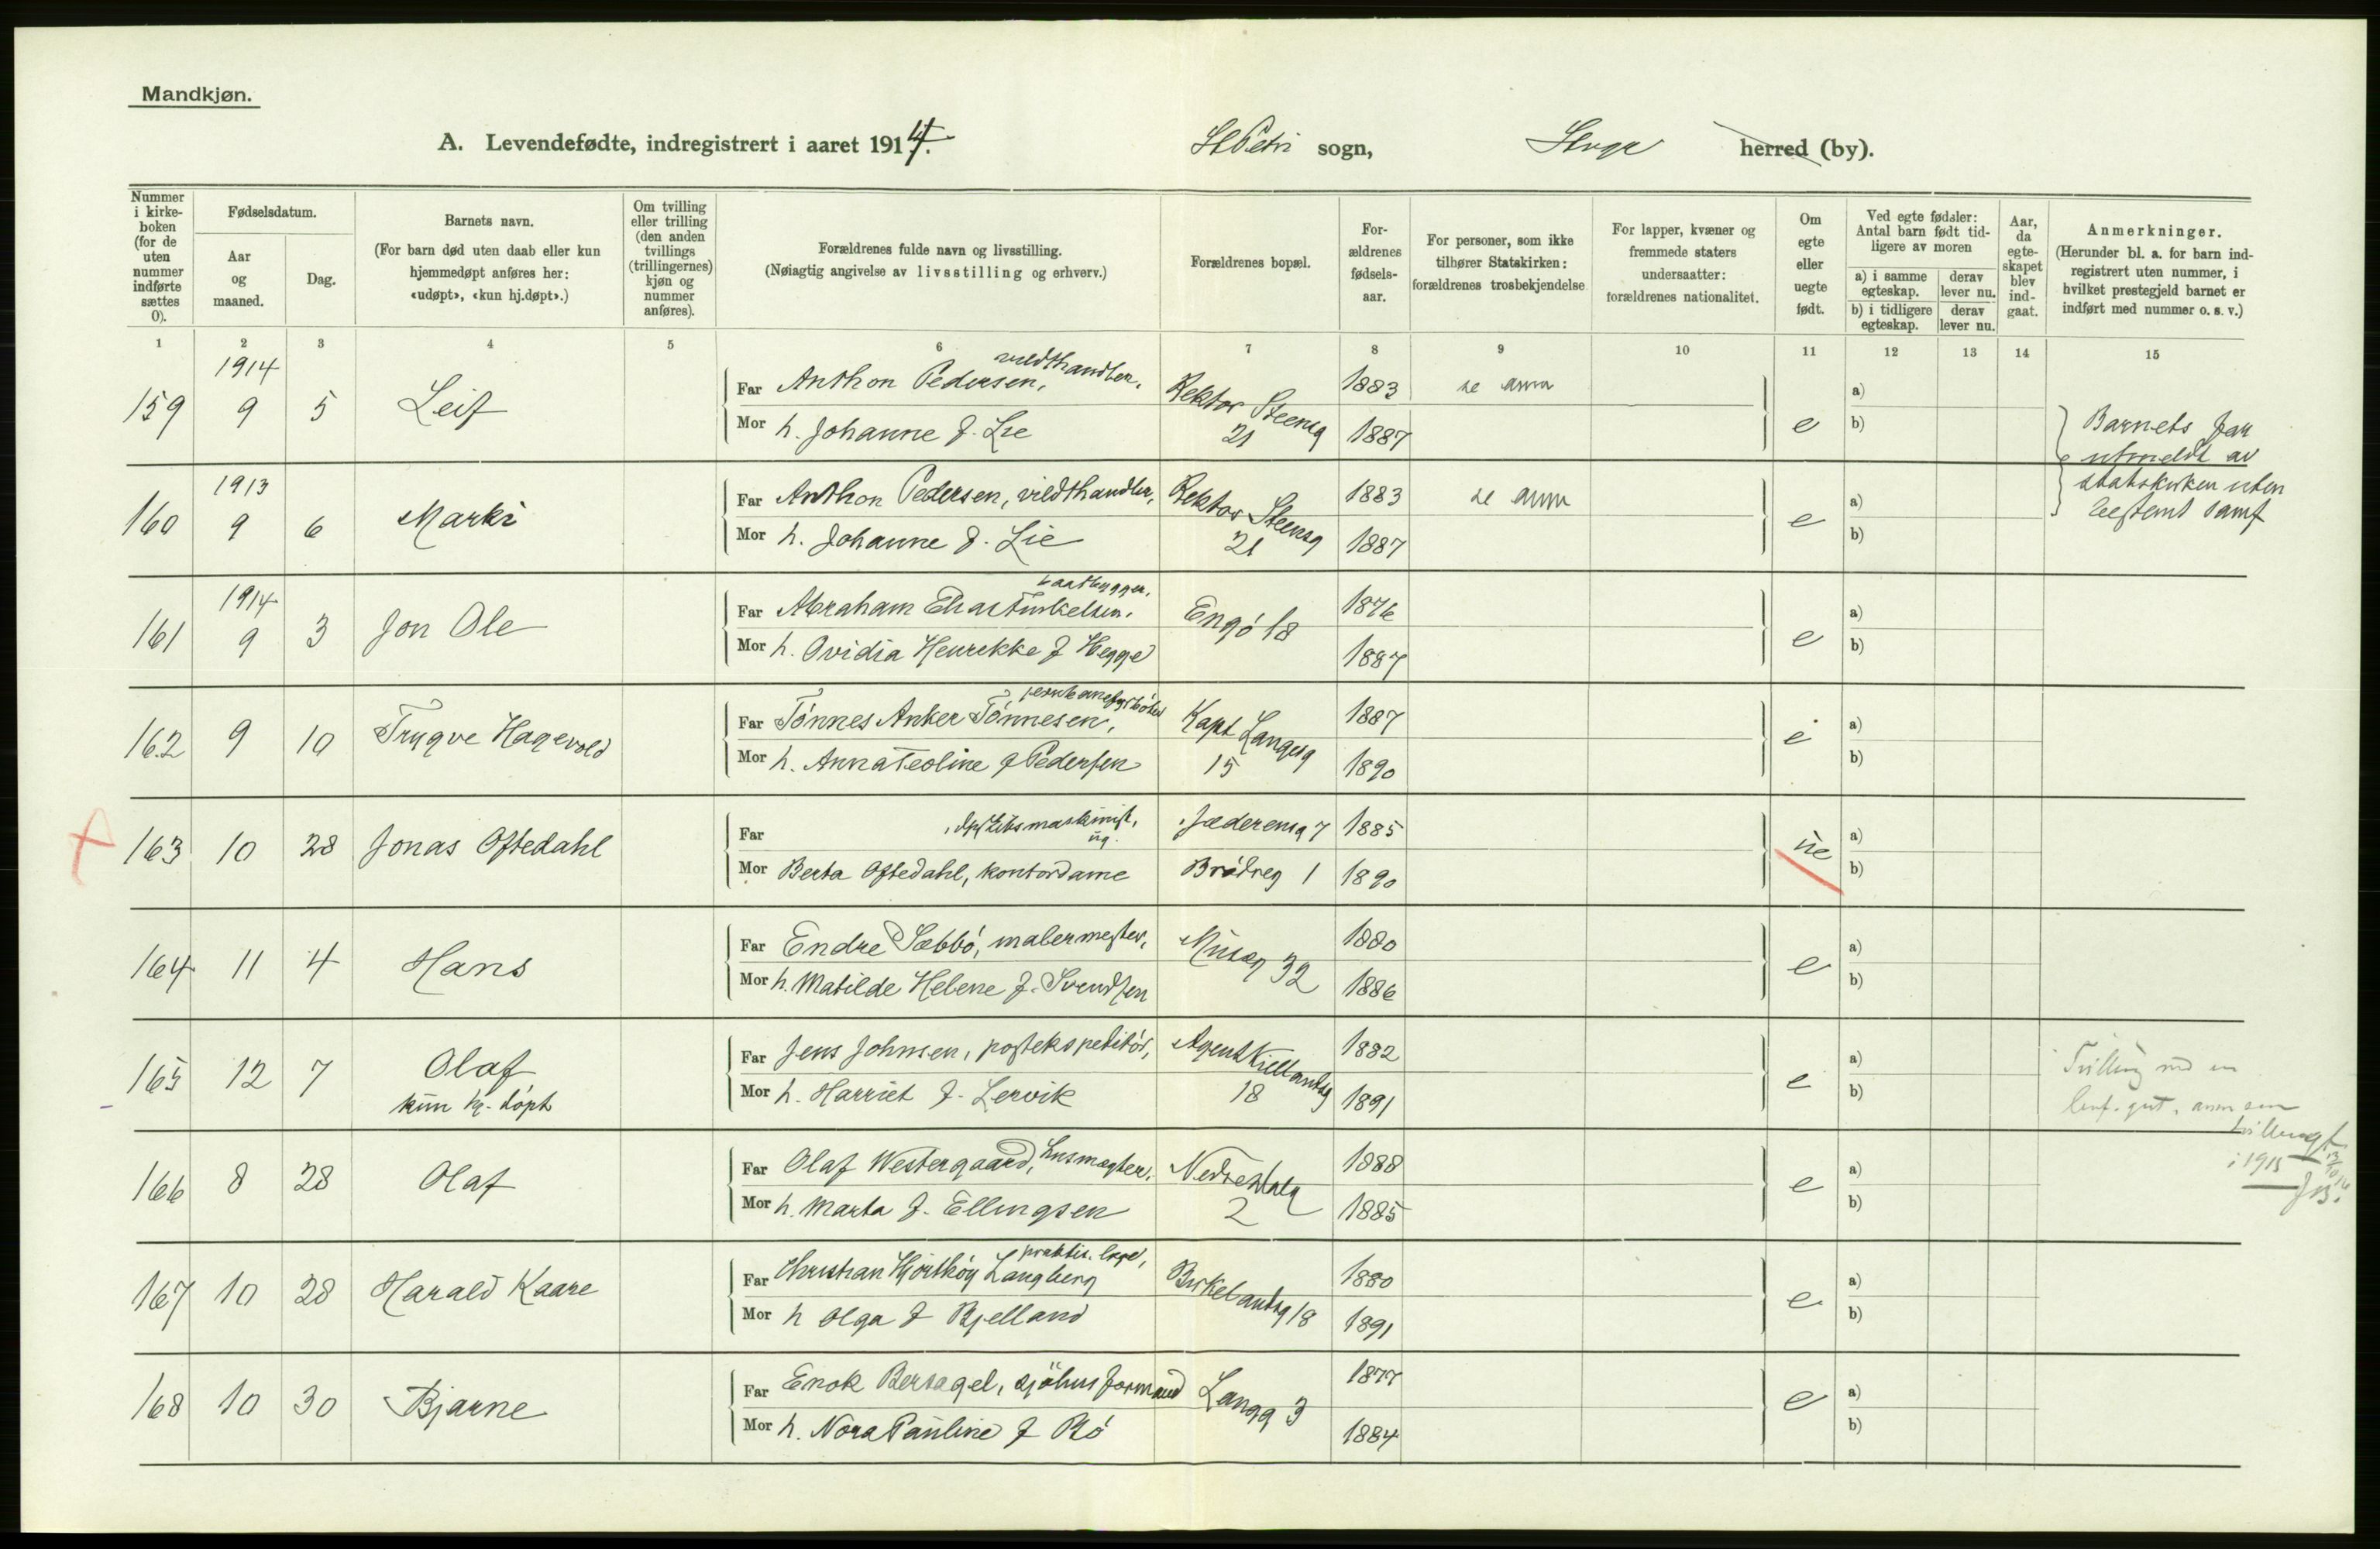 Mandkjøn.
A. Levendefødte, indregistrert i aaret 1914. St Petri sogn, Stvgr herred (by).
Nummer i kirkeboken (for de uten nummer indførte sættes 0).
Fødselsdatum.
Aar og maaned.
Dag.
Barnets navn.
(For barn død uten daab eller kun hjemmedøpt anføres her: «udøpt», «kun hj.døpt».)
Om tvilling eller trilling (den anden tvillings (trillingernes) kjøn og nummer anføres).
Forældrenes fulde navn og livsstilling.
(Nøiagtig angivelse av livsstilling og erhverv.)
Forældrenes bopæl.
For-ældrenes fødsels-aar.
For personer, som ikke tilhører Statskirken: forældrenes trosbekjendelse
For lapper, kvæner og fremmede staters undersaatter: forældrenes nationalitet.
Om egte eller uegte født.
Ved egte fødsler: Antal barn født tid-ligere av moren
a) i samme egteskap.
derav lever nu.
b) i tidligere egteskap.
derav lever nu.
Aar, da egte-skapet blev ind-gaat.
Anmerkninger.
(Herunder bl. a. for barn ind-registrert uten nummer, i hvilket prestegjeld barnet er indført med nummer o. s. v.)
1 2 3 4 5 6 7 8 9 10 11 12 13 14 15
1914
159 9 5 Leif
Far Anthon Pedersen, vildthandler, Rektor Steensg 21 1883 se anm
Mor h. Johanne f. Lie 1887 e
a)
b)
Barnets far
utmeldt av
statskirken uten
bestemt samf
1913
160 9 6 Marki
Far Anthon Pedersen, vildthandler, Rektor Steensg 21 1883 se anm
Mor h. Johanne f. Lie 1887 e
a)
b)
1914
161 9 3 Jon Ole
Far Abraham Elias Turkelsen, baatbygger, Engø 18 1876
Mor h. Ovidia Henrikke f Hegge 1887 e
a)
b)
162 9 10 Trygve Hagevold
Far Tønnes Anker Tønnesen, Kapt Langesg 15 1887
Mor h. Anna Teoline f Pedersen 1890 e
a)
b)
163 10 28 Jonas Oftedahl
Far , dpskibsmaskinist, ug. Jæderensg 7 1885
Mor Berta Oftedahl, kontordame Brødreg 1 1890 ue
a)
b)
164 11 4 Hans
Far Endre Sæbbø, malermester, Museg 32 1880
Mor h. Matilde Helene f. Svendsen 1886 e
a)
b)
165 12 7 Olaf
kun hj. døpt
Far Jens Johnsen, postekspeditør, Agent Kiellandsg 18 1882
Mor h. Harriet f. Lervik 1891 e
a)
b)
Tvilling med en
i 1915
166 8 28 Olaf
Far Olaf Westergaard, Nedrestalg 2 1888
Mor h. Marta f. Ellingsen 1885 e
a)
b)
167 10 28 Harald Kaare
Far Christian Hjortkøy Langberg praktis. læge, Birkelandsg 18 1880
Mor h Olga f Bjelland 1891 e
a)
b)
168 10 30 Bjarne
Far Enok Bersagel, sjøhusformand Langg 3 1877
Mor h. Nora Pauline f Bø 1884 e
a)
b)